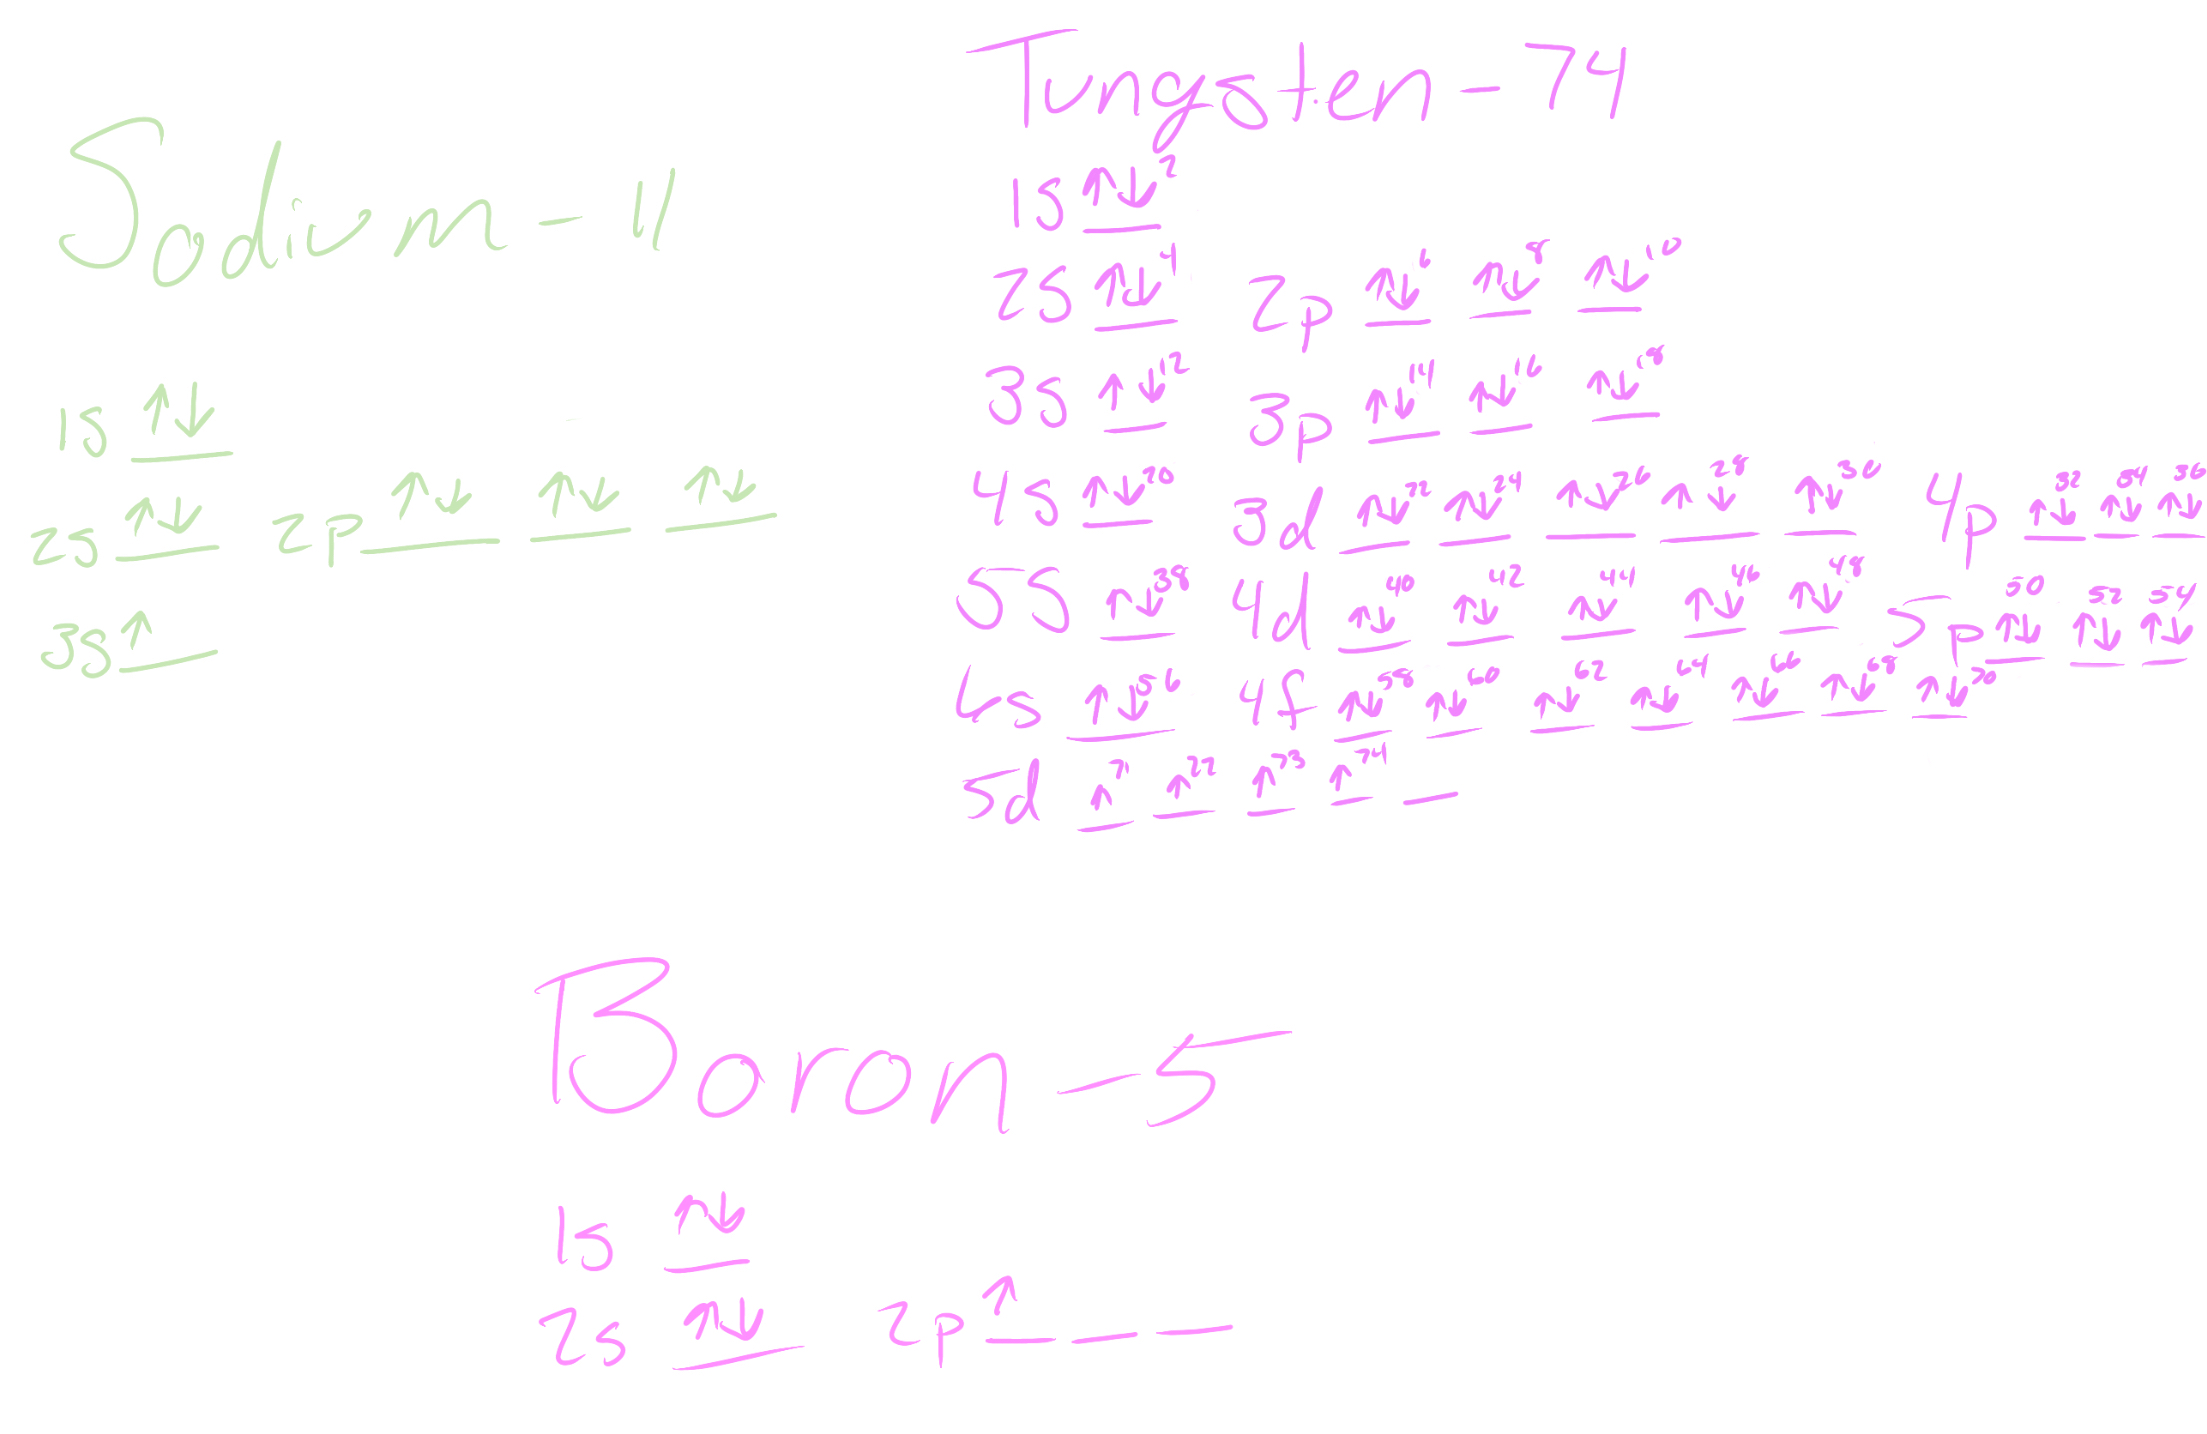 Sodium - 11
1s ↑↓
2s ↑↓ 2p ↑↓ ↑↓ ↑↓
3s ↑
Tungsten - 74
1s ↑↓2
2s ↑↓4 2p ↑↓6 ↑↓8 ↑↓10
3s ↑↓12 3p ↑↓14 ↑↓16 ↑↓18
4s ↑↓20 3d ↑↓22 ↑↓24 ↑↓26 ↑↓28 ↑↓30 4p ↑↓32 ↑↓34 ↑↓36
5s ↑↓38 4d ↑↓40 ↑↓42 ↑↓44 ↑↓46 ↑↓48 5p ↑↓50 ↑↓52 ↑↓54
6s ↑↓56 4f ↑↓58 ↑↓60 ↑↓62 ↑↓64 ↑↓66 ↑↓68 ↑↓70
5d ↑71 ↑72 ↑73 ↑74 _
Boron - 5
1s ↑↓
2s ↑↓ 2p ↑ _ _